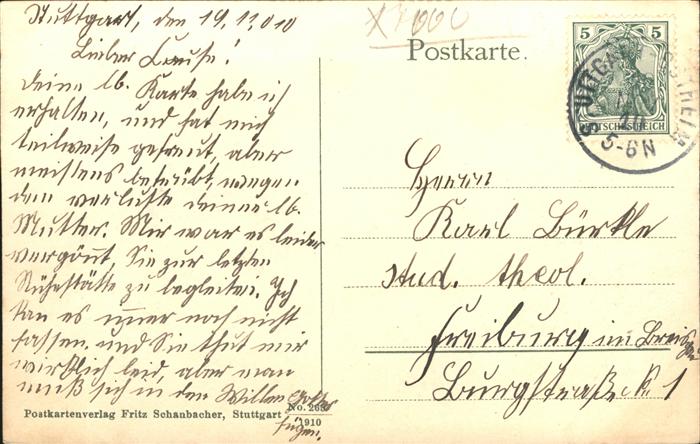 Stuttgart, den 19.11.010
Lieber
Deine lb. Karte habe ich
erhalten, und hat mich
teilweise gefreut, aber
meistens betrübt, wegen
dem verluste deiner lb.
Mutter. Mir war es leider
vergönnt, Sie zur letzten
Ruhestätte zu begleiten. Ich
kan es immer noch nicht
fassen. und Sie thut mir
wirklich leid, aber man
muß sich in den Willen Gottes
fügen.
Postkartenverlag Fritz Schanbacher, Stuttgart
1910
Postkarte.
5 5
DEUTSCHES REICH
5-6N
Herrn
Karl Bürkle
stud. theol.
Freiburg im Breisgau
Burgstraße 1